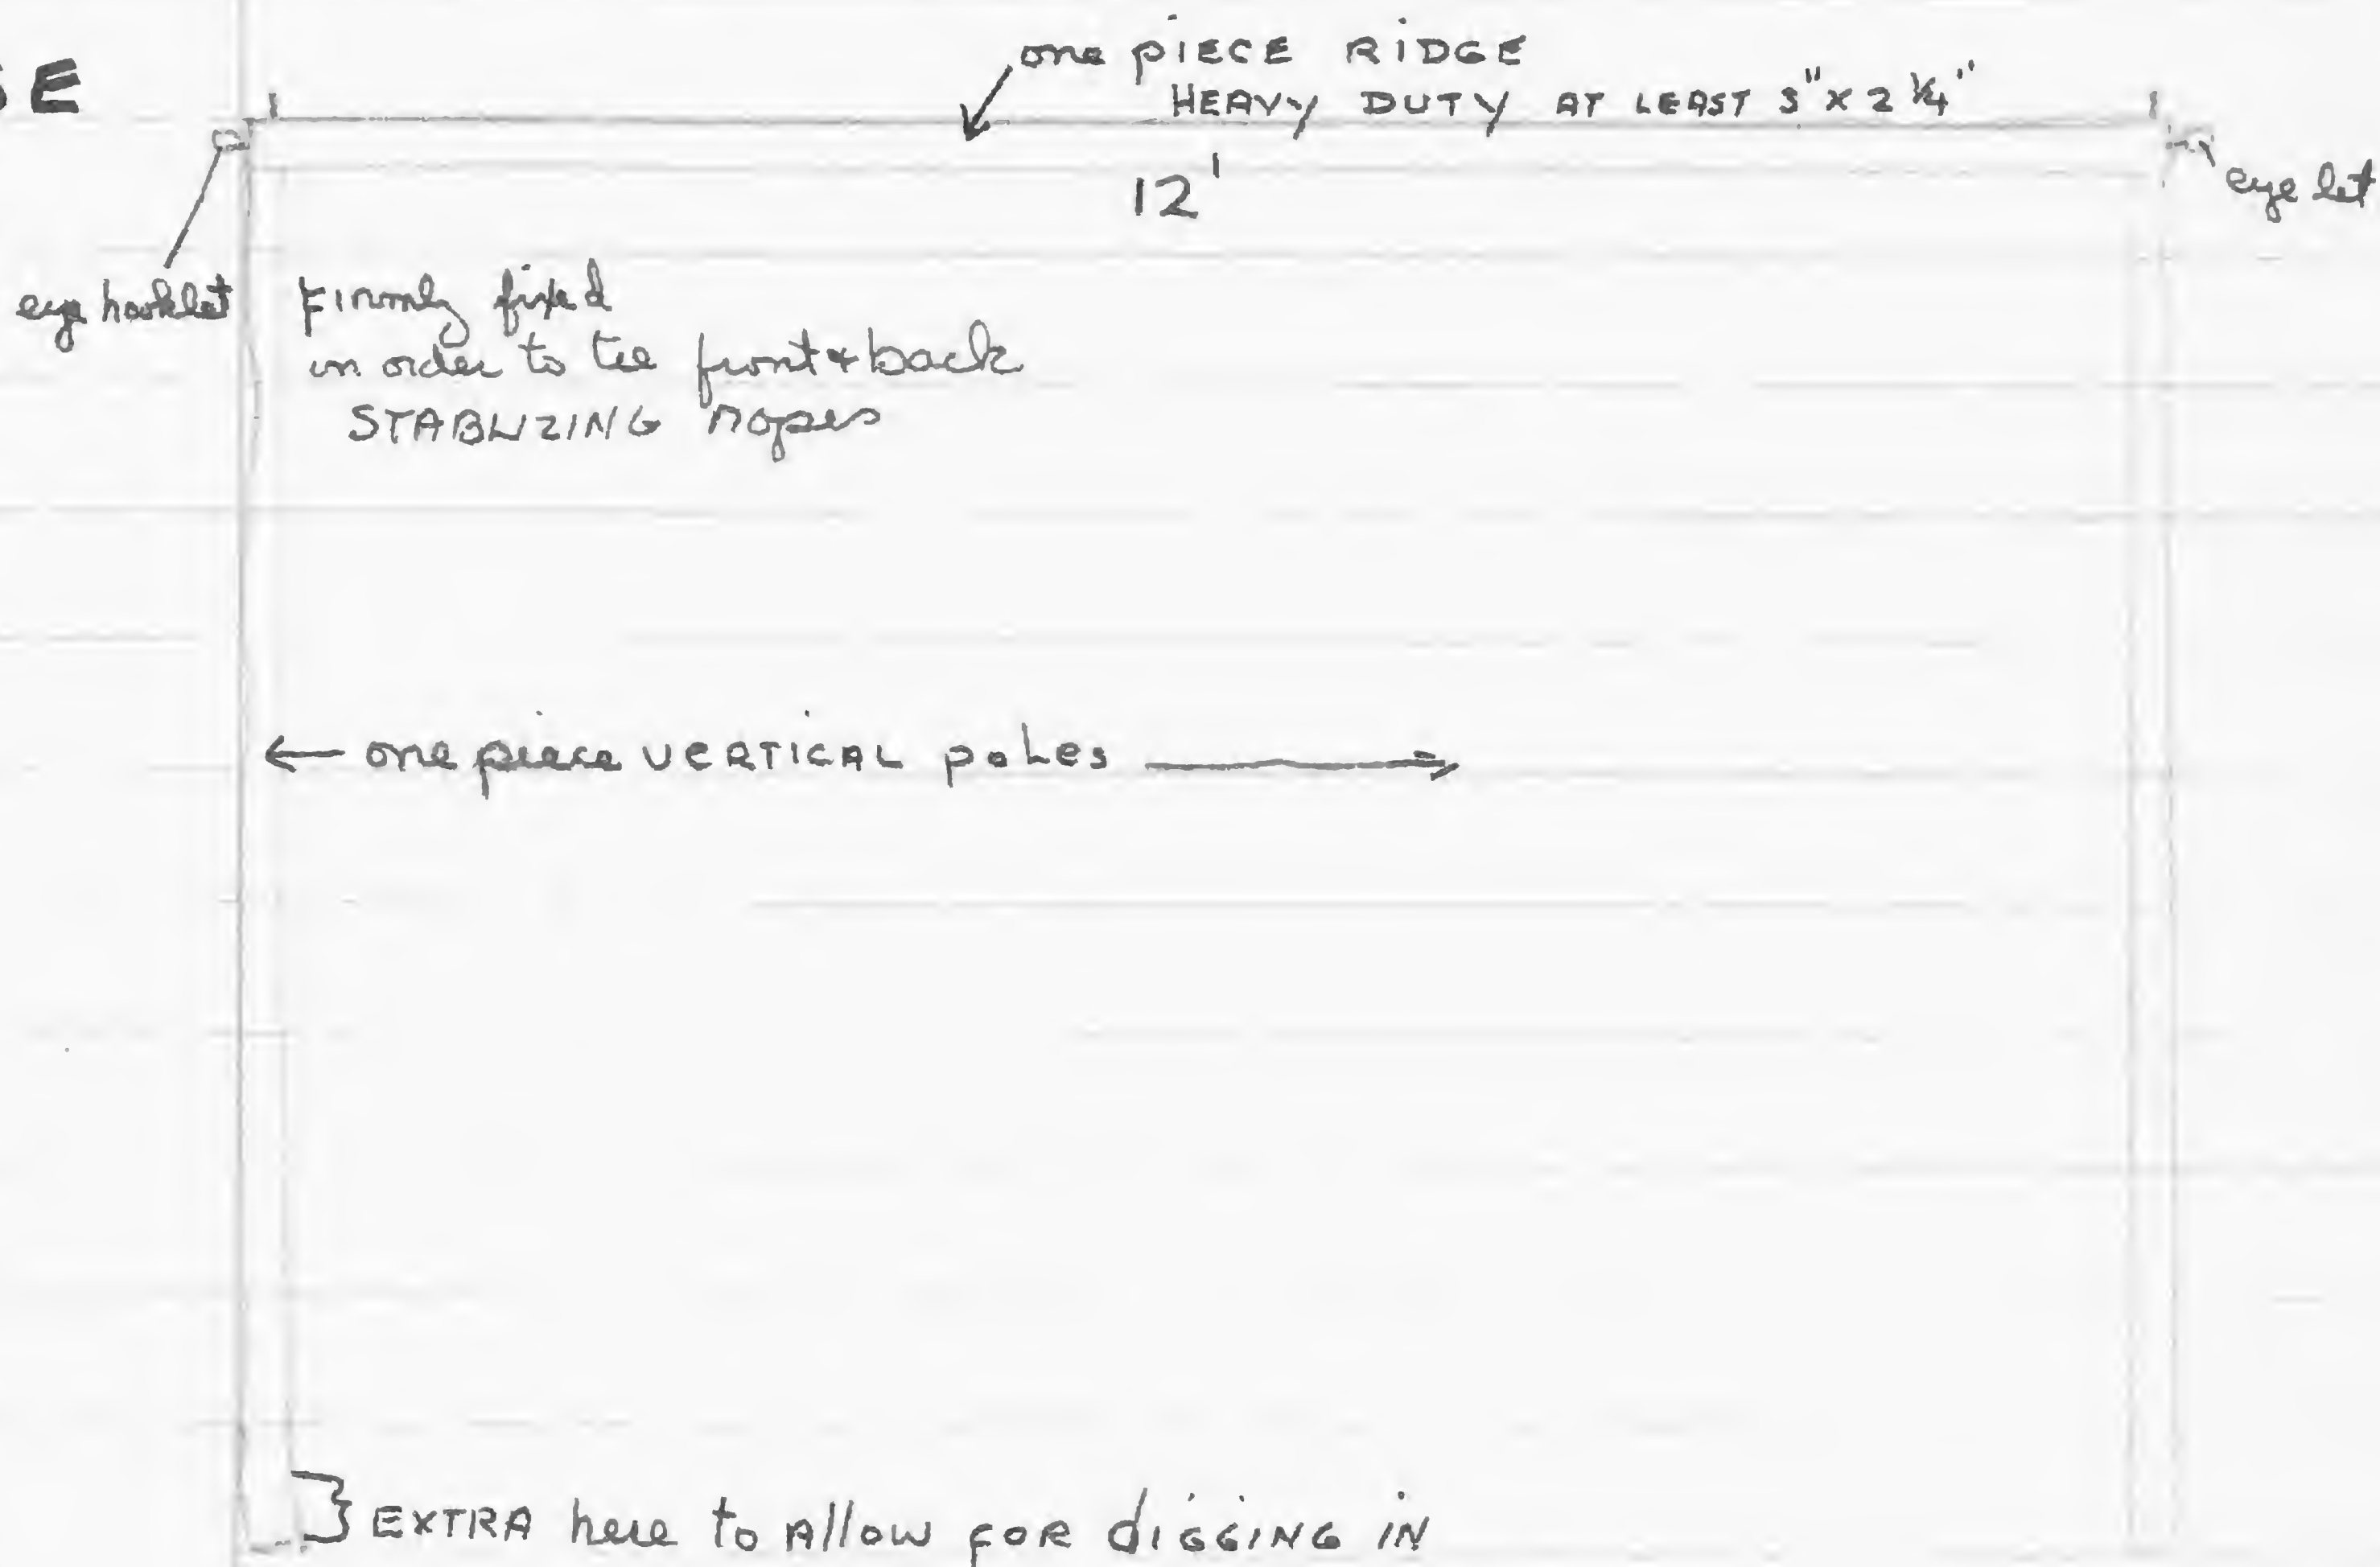 SE
one piece RIDGE
HEAVY DUTY AT LEAST 3" x 2 1/4"
12'
eye let
eye hooklet
Firmly fixed
in order to tie front & back
STABLIZING ropes
← one piece VERTICAL poles →
} EXTRA here to ALLOW FOR diGGING IN